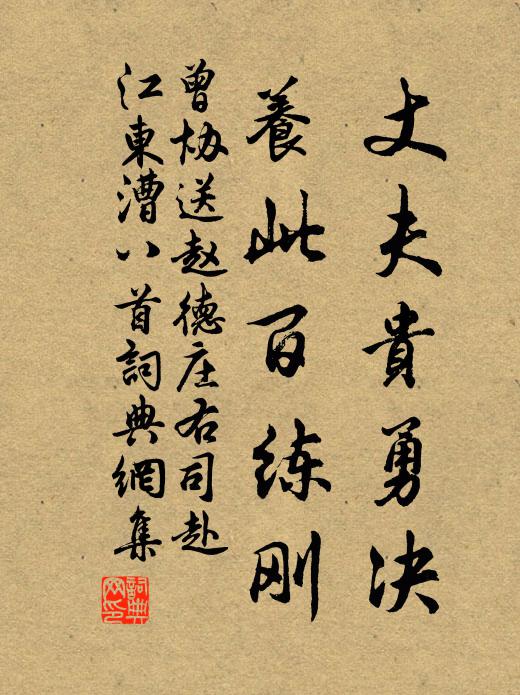 丈夫貴勇决
養此百练刚
曾协送赵德庄右司赴
江東漕八首詞典網集
詞典网印